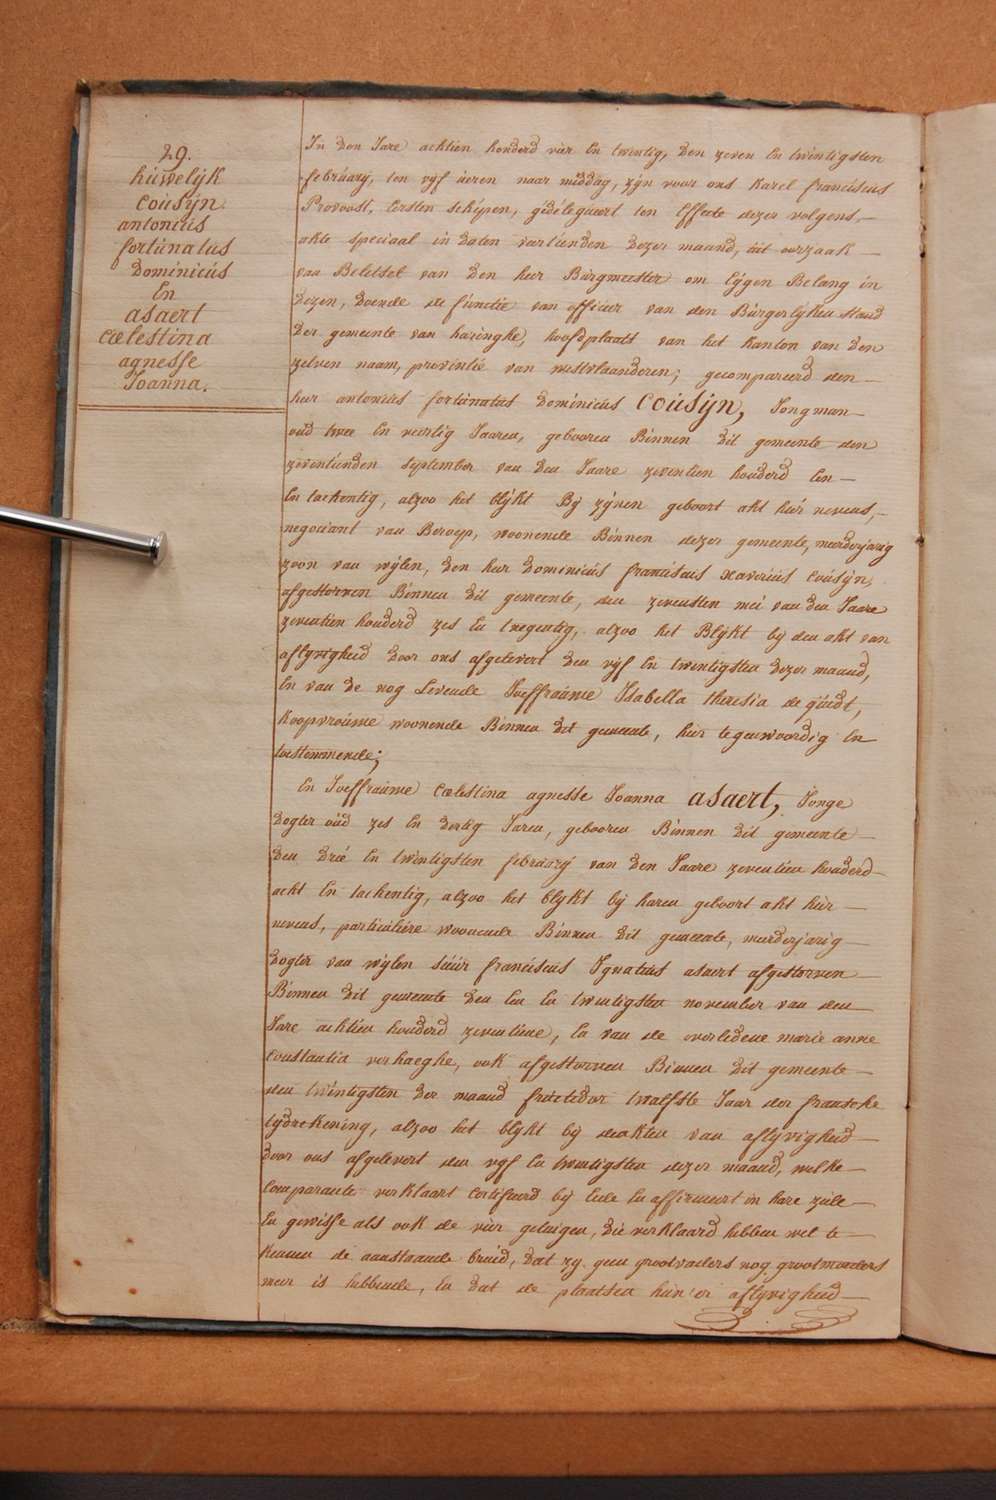 29.
húwelÿk
coúsÿn
antoniús
fortúnatús
Dominicús
En
asaert
cælestina
agnesse
Joanna.
In den Jare achtien honderd vier En twintig, den zeven En twintigsten
febrúarÿ, ten vÿf úeren naar middag, zÿn voor ons Karel franciscus
Provoost, Eersten schepen, gedelegueert ten Effecte dezer volgens,
akte speciaal in daten vartienden dezer maand, úit oorzaak
van Beletsel van den heer Búrgmeester om Eÿgen Belang in
Dezen, Doende de functie van officier van den Búrgerlÿken stand
Der gemeente van haringhe, hoofdplaats van het Kanton van den
zelven naam, provintie van westvlaanderen; gecompareerd den
heer antoniús fortúnatús Dominicús COÚSŸN, Jongman
oúd twee En veertig Jaaren, gebooren Binnen dit gemeente den
zeventienden september van den Jaare zeventien honderd Een
En tachentig, alzoo het blÿkt Bÿ zÿnen geboort akt hier nevens,
negociant van Beroep, woonende Binnen dezer gemeente, meerderjarig
zoon van wÿlen, den heer Dominicús franciscus xaveriús coúsÿn,
afgestorven Binnen dit gemeente, den zevensten meÿ van den Jaare
zeventien honderd zes En tnegentig, alzoo het Blÿkt bÿ den akt van
aflÿvigheid door ons afgelevert den vÿf En twintigsten dezer maand,
En van de nog Levende Joeffraúwe Isabella theresia de gúidt,
Koopvroúwe woonende Binnen dit gemeente, hier tegenwoordig En
toestemmende;
En Joeffraúwe cælestina agnesse Joanna asaert, Jonge
Dogter oúd zes En dertig Jaren, gebooren Binnen dit gemeente
den drie En twintigsten febrúarÿ van den Jaare zeventien honderd
acht En tachentig, alzoo het blÿkt bÿ haren geboort akt hier
nevens, particúliere woonende Binnen dit gemeente, meerderjarig
dogter van wÿlen sieúr franciscus Ignatiús asaert afgestorven
Binnen dit gemeente den Een En twintigsten november van den
Jare achtien honderd zeventiene, En van de overledene marie anne
constantia verhaeghe, ook afgestorven Binnen dit gemeente
den twintigsten der maand fructedor twalfste Jaar der fransche
tÿdrekening, alzoo het blÿkt bÿ de akten van aflÿvigheid
door ons afgelevert den vÿf En twintigsten dezer maand, welke
Comparante verklaart certifieerd bÿ Eede En affirmeert in hare ziele
En gewisse als ook de vier getuigen, die verklaard hebben wel te
Kennen de aanstaande brúid, dat zÿ geen grootvaders nog grootmoeders
meer is hebbende, En dat de plaatsen húnner aflÿvigheid